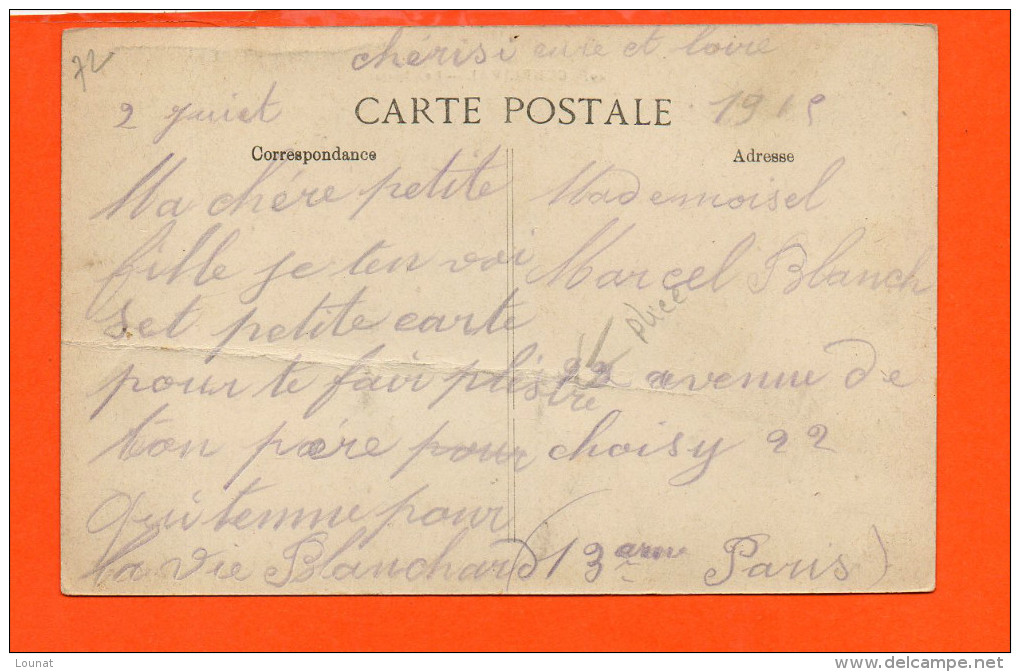 72
chérisi eure et loire
2 juiet 1915
CARTE POSTALE
Correspondance
Ma chére petite
fille je ten voi
set petite carte
pour te fair plis
ire
ton père pour
qui temme pour
la vie Blanchard
Adresse
Mademoisel
Marcel Blanch
pliée
22 avenue de
choisy 22
13 arm Paris)
Lounat
www.delcampe.net